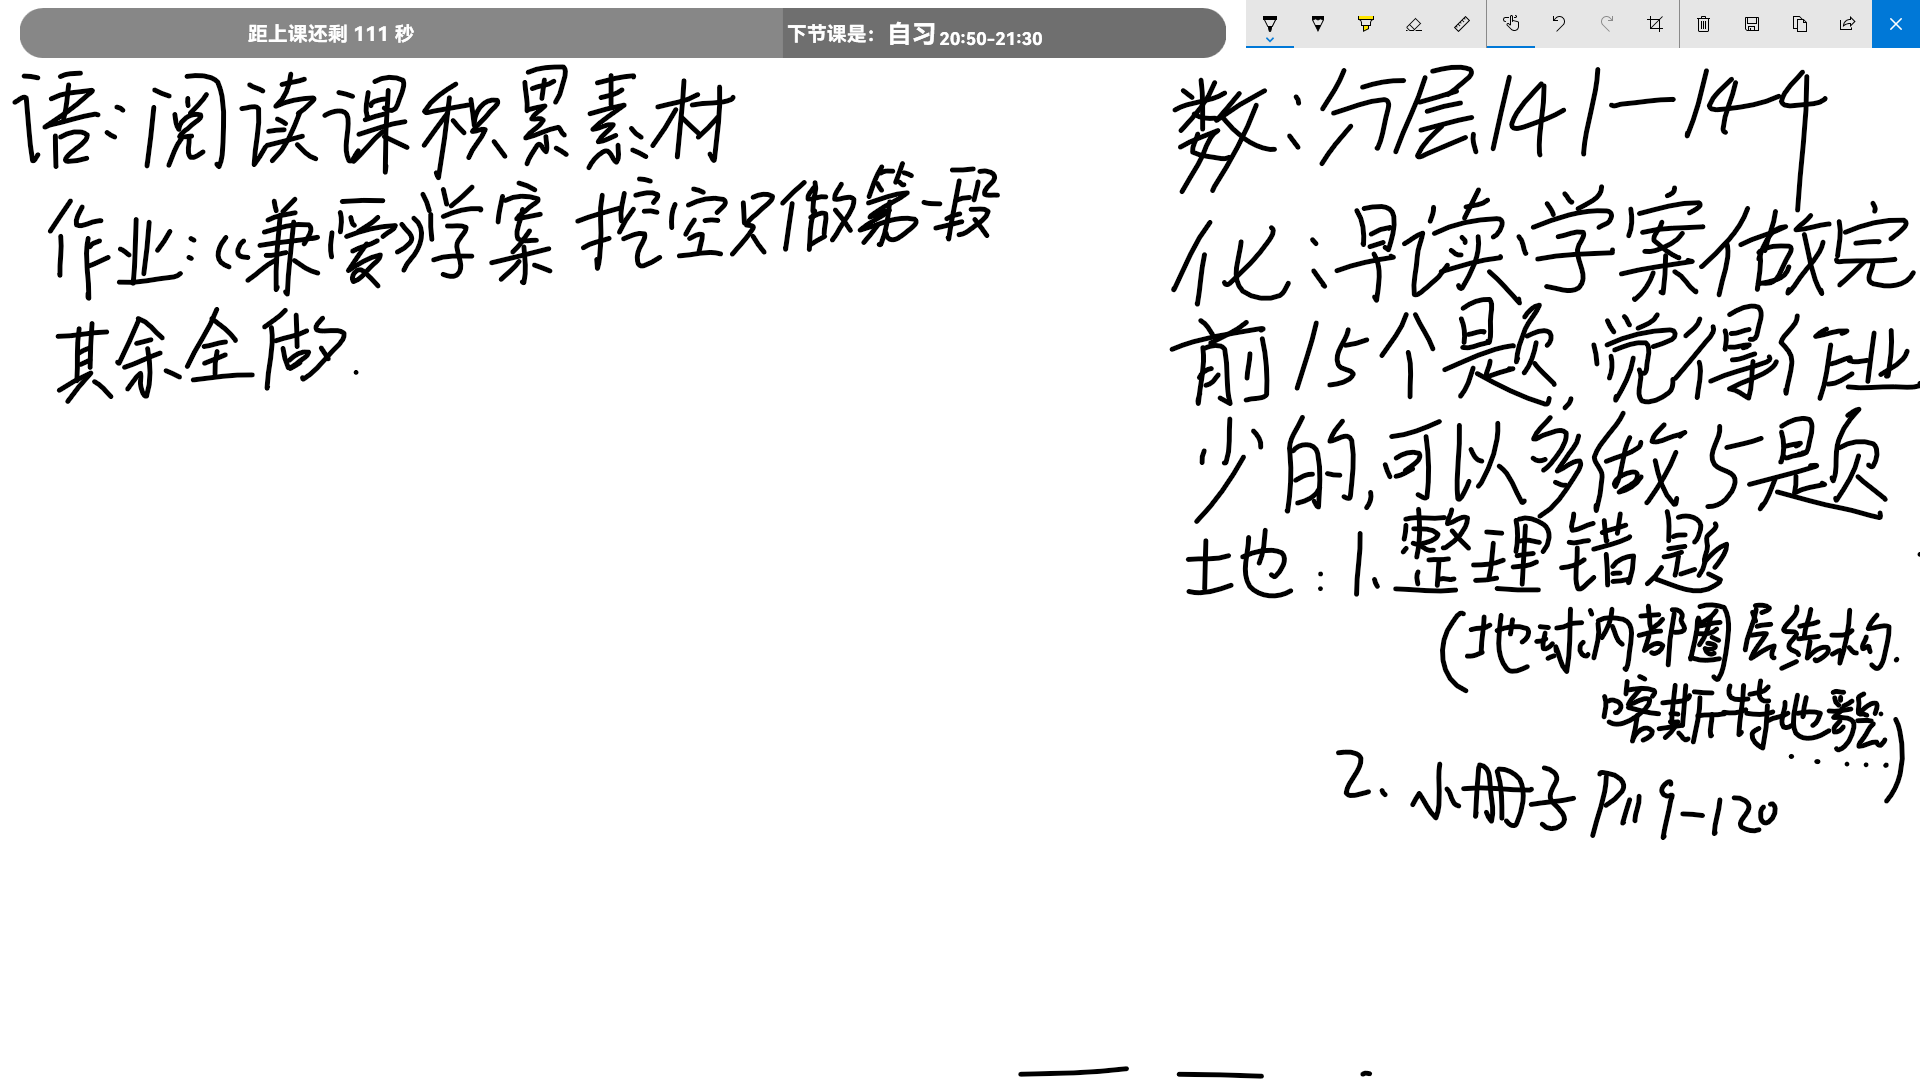 距上课还剩 111 秒
下节课是：自习 20:50-21:30
语：阅读课积累素材
作业：《兼爱》学案 挖空只做第一段
其余全做.
数：分层141—144
化：早读学案做完
前15个题，觉得作业
少的，可以多做5题
地：1.整理错题
(地球内部圈层结构.
喀斯特地貌......)
2.小册子P119-120